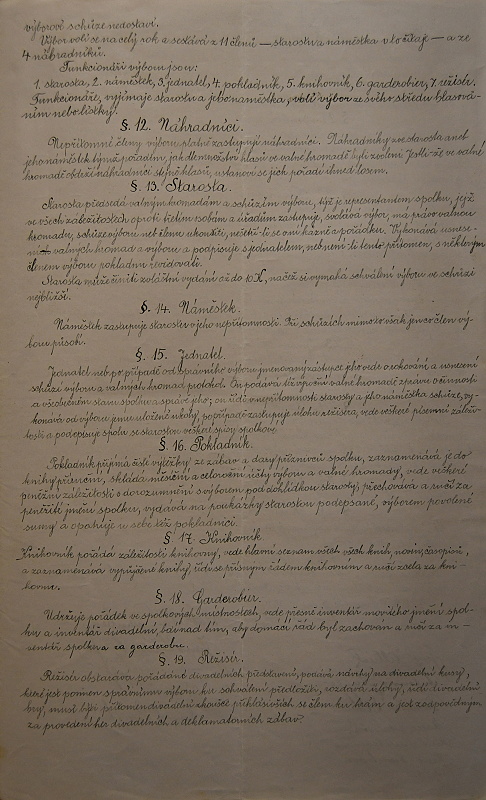 výborové schůze nedostaví.
Výbor volí se na celý rok a sestává z 11 členů — starostu a náměstka v to čítaje — a ze
4 náhradníků.
Funkcionáři výboru jsou:
1. starosta, 2. náměstek, 3. jednatel, 4. pokladník, 5. knihovník, 6. garderobier, 7. režisér.
Funkcionáře, vyjímaje starostu a jeho náměstka, volí výbor ze svého středu hlasová-
ním neb lístky.
§. 12. Náhradníci.
Nepřítomné členy výboru platně zastupují náhradníci. Náhradníky zve starosta aneb
jeho náměstek týmž pořadím, jak dle množství hlasů ve valné hromadě byli zvoleni. Jestliže ve valné
hromadě obdrží náhradníci stejně hlasů, ustanoví se jich pořadí ihned losem.
§. 13. Starosta.
Starosta předsedá valným hromadám a schůzím výboru, týž je representantem spolku, jejž
ve všech záležitostech oproti třetím osobám a úřadům zastupuje, svolává výbor, má právo valnou
hromadu, schůze výborů neb členů ukončiti, nešetří-li se oni kázně a pořádku. Vykonává usnese-
valných hromad a výboru a podpisuje s jednatelem, neb není-li tento přítomen, s některým
členem výboru pokladnu revidovati.
Starosta může činiti zvláštní vydání až do 10 K, načež si vymáhá schválení výboru ve schůzi
nejbližší.
§. 14. Náměstek.
Náměstek zastupuje starostu v jeho nepřítomnosti. Při schůzích mimo to však jen co člen vý-
boru působí.
§. 15. Jednatel.
Jednatel neb po případě od správního výboru jmenovaný zástupce jeho vede o rokování, a usnesení
schůzí výboru a valných hromad protokol. On podává též výroční valné hromadě zprávu o činnosti
a všeobecném stavu spolku a správě jeho; on řídí v nepřítomnosti starosty a jeho náměstka schůze, vy-
konává od výboru jemu uložené úkoly, popřípadě zastupuje úlohu režiséra, vede veškeré písemní záleži-
tosti a podepisuje spolu se starostou veškeré spisy spolkové.
§. 16. Pokladník.
Pokladník přijímá čisté výtěžky ze zábav a dary příznivců spolku, zaznamenává je do
knihy příjmové, skládá měsíční a celoroční účty výboru a valné hromady, vede veškeré
peněžní záležitosti s dorozumění s výborem pod dohlídkou starosty; přechovává a ručí za
peněžité jmění spolku, vydává na poukázky starostou podepsané, výborem povolené
sumy a opatruje u sebe též pokladnici.
§ 17. Knihovník.
Knihovník pořádá záležitosti knihovny, vede hlavní seznam všech všech knih, novin, časopisů,
a zaznamenává vypůjčené knihy, řídí se přísným řádem knihovním a ručí zcela za kni-
hovnu.
§. 18. Garderobier.
Udržuje pořádek ve spolkových místnostech, vede přesně inventář movitého jmění spol-
ku a inventář divadelní, bdí nad tím, aby domácí řád byl zachován a ručí za in-
ventář spolku a za garderobu.
§. 19. Režisér.
Režisér obstarává pořádání divadelních představení, podává návrhy na divadelní kusy,
které jest povinen správnímu výboru ku schválení předložiti, rozdává úlohy, řídí divadelní
hry, musí býti přítomen divadelní zkoušce přihlásivších se členů ku hraní a jest zodpovědným
za provedení her divadelních a deklamatorních zábav.